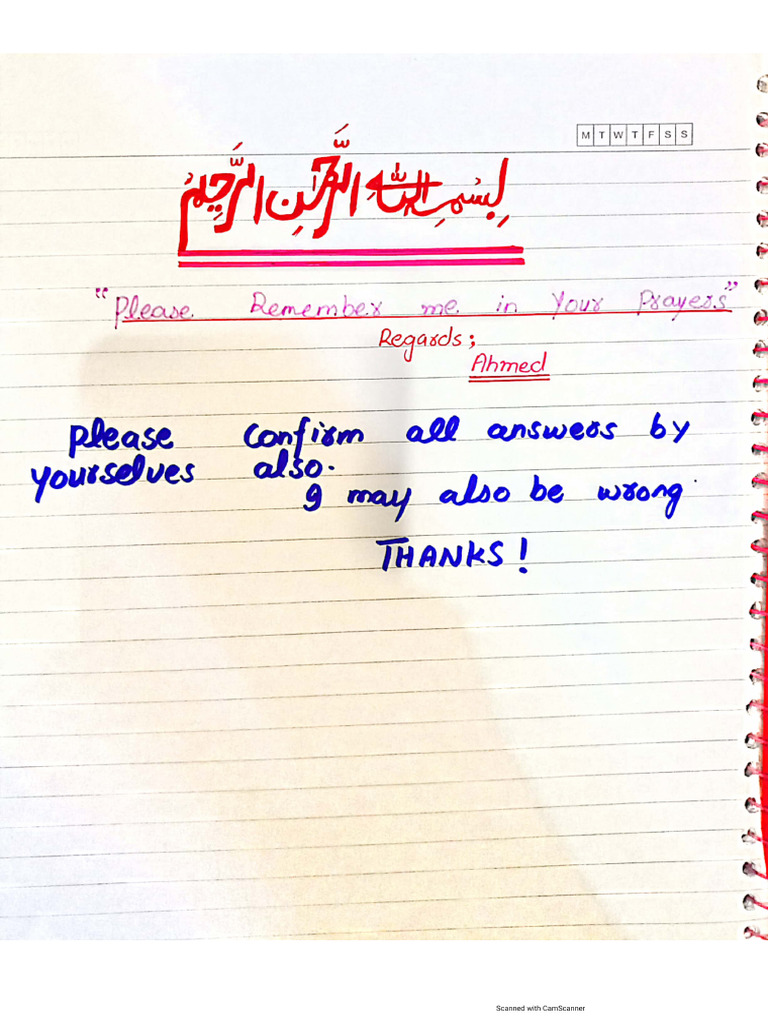 M T W T F S S
بِسْمِ اللّٰهِ الرَّحْمٰنِ الرَّحِيْمِ
"Please Remember me in Your Prayers"
Regards;
Ahmed
Please confirm all answers by
yourselves also.
I may also be wrong.
THANKS!
Scanned with CamScanner